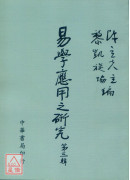 陳立夫主編
黎凱旋協編
易學應用之研究
第三輯
中華書局印行